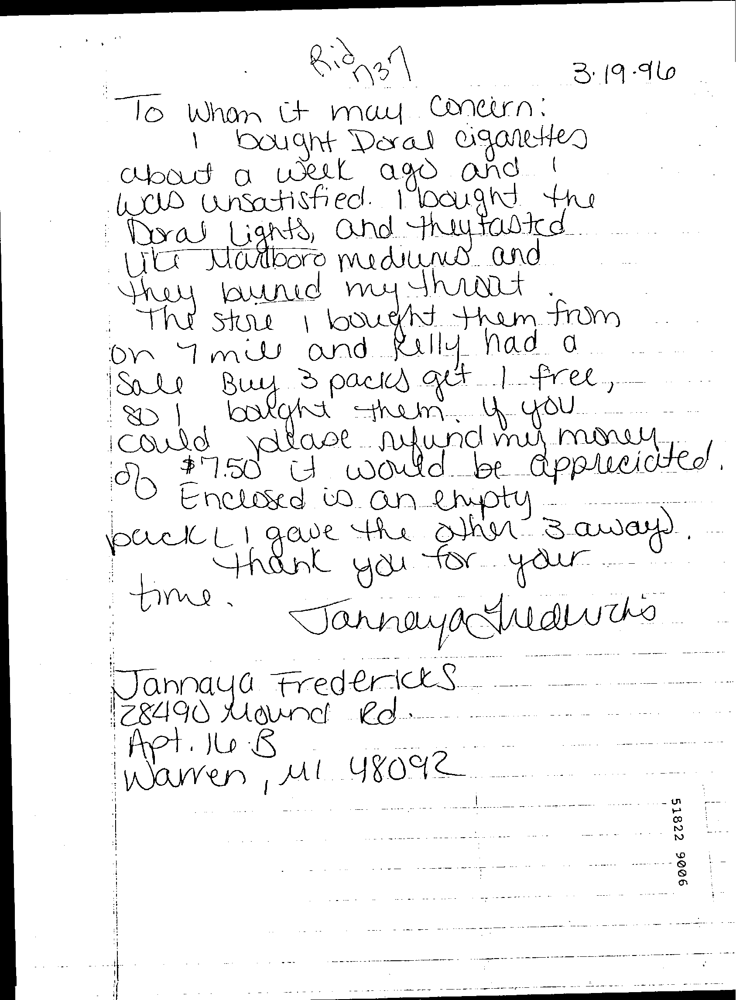 Rid
737
3.19.96
To whom it may concern:
I bought Doral cigarettes
about a week ago and I
was unsatisfied. I bought the
Doral Lights, and they tasted
like Marlboro mediums and
they burned my throat.
The store I bought them from
on 7 mile and Kelly had a
Sale Buy 3 packs get 1 free,
so I bought them. If you
could please refund my money
of $7.50 it would be appreciated.
Enclosed is an empty
pack (I gave the other 3 away).
Thank you for your
time.
Jannaya Fredericks
Jannaya Fredericks
28490 Mound Rd.
Apt. 16 B
Warren, MI 48092
51822 9006